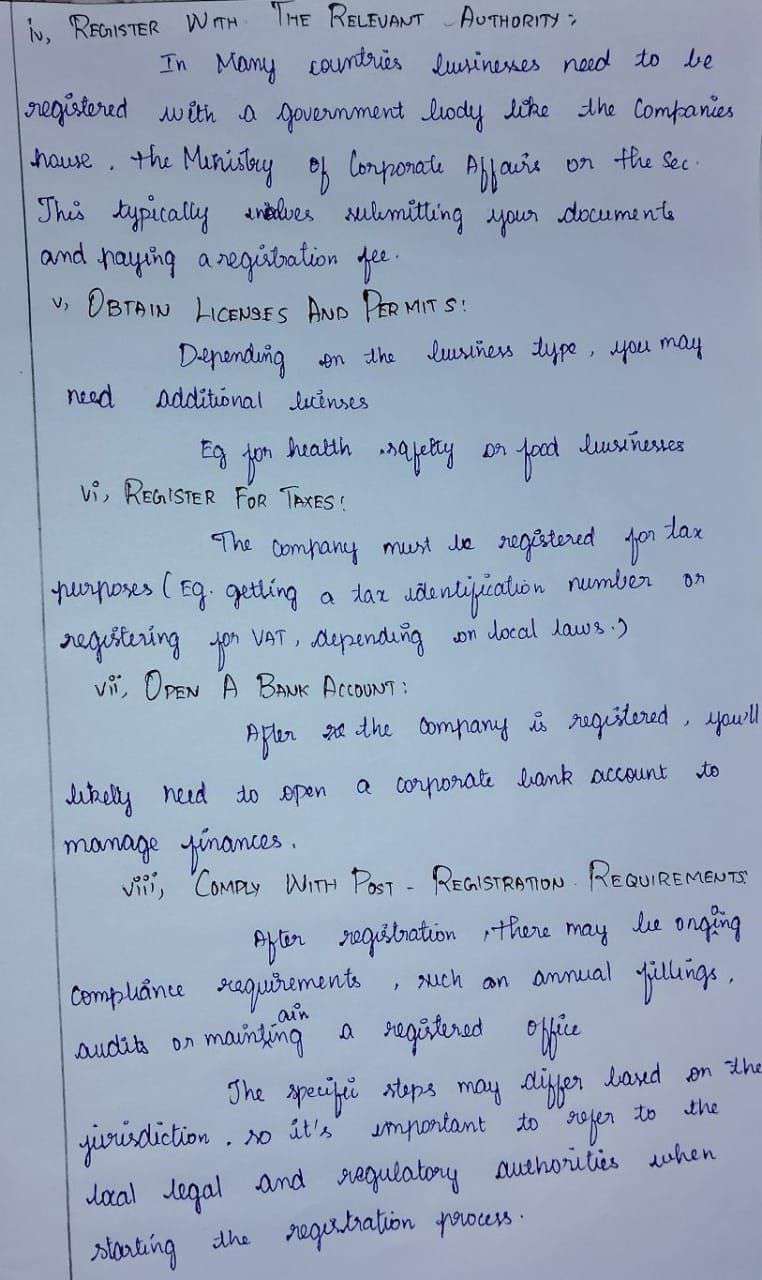 iv, REGISTER WITH THE RELEVANT AUTHORITY:
In Many countries businesses need to be
registered with a government body like the Companies
house, the Ministry of Corporate Affairs or the Sec.
This typically involves submitting your documents
and paying a registration fee.
v, OBTAIN LICENSES AND PERMITS:
Depending on the business type, you may
need additional licenses
Eg for health safetty or food businesses
vi, REGISTER FOR TAXES:
The company must be registered for tax
purposes (Eg. getting a tax identification number or
registering for VAT, depending on local laws.)
vii, OPEN A BANK ACCOUNT:
After the company is registered, you'll
likely need to open a corporate bank account to
manage finances.
viii, COMPLY WITH POST - REGISTRATION REQUIREMENTS:
After registration, there may be ongoing
compliance requirements, such an annual fillings,
audits or maintaining a registered office
The specific steps may differ based on the
jurisdiction. so it's important to refer to the
local legal and regulatory authorities when
starting the registration process.